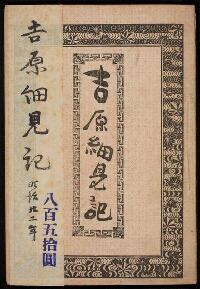 吉原細見記
吉原細見記
明治廿二年
八百五拾圓